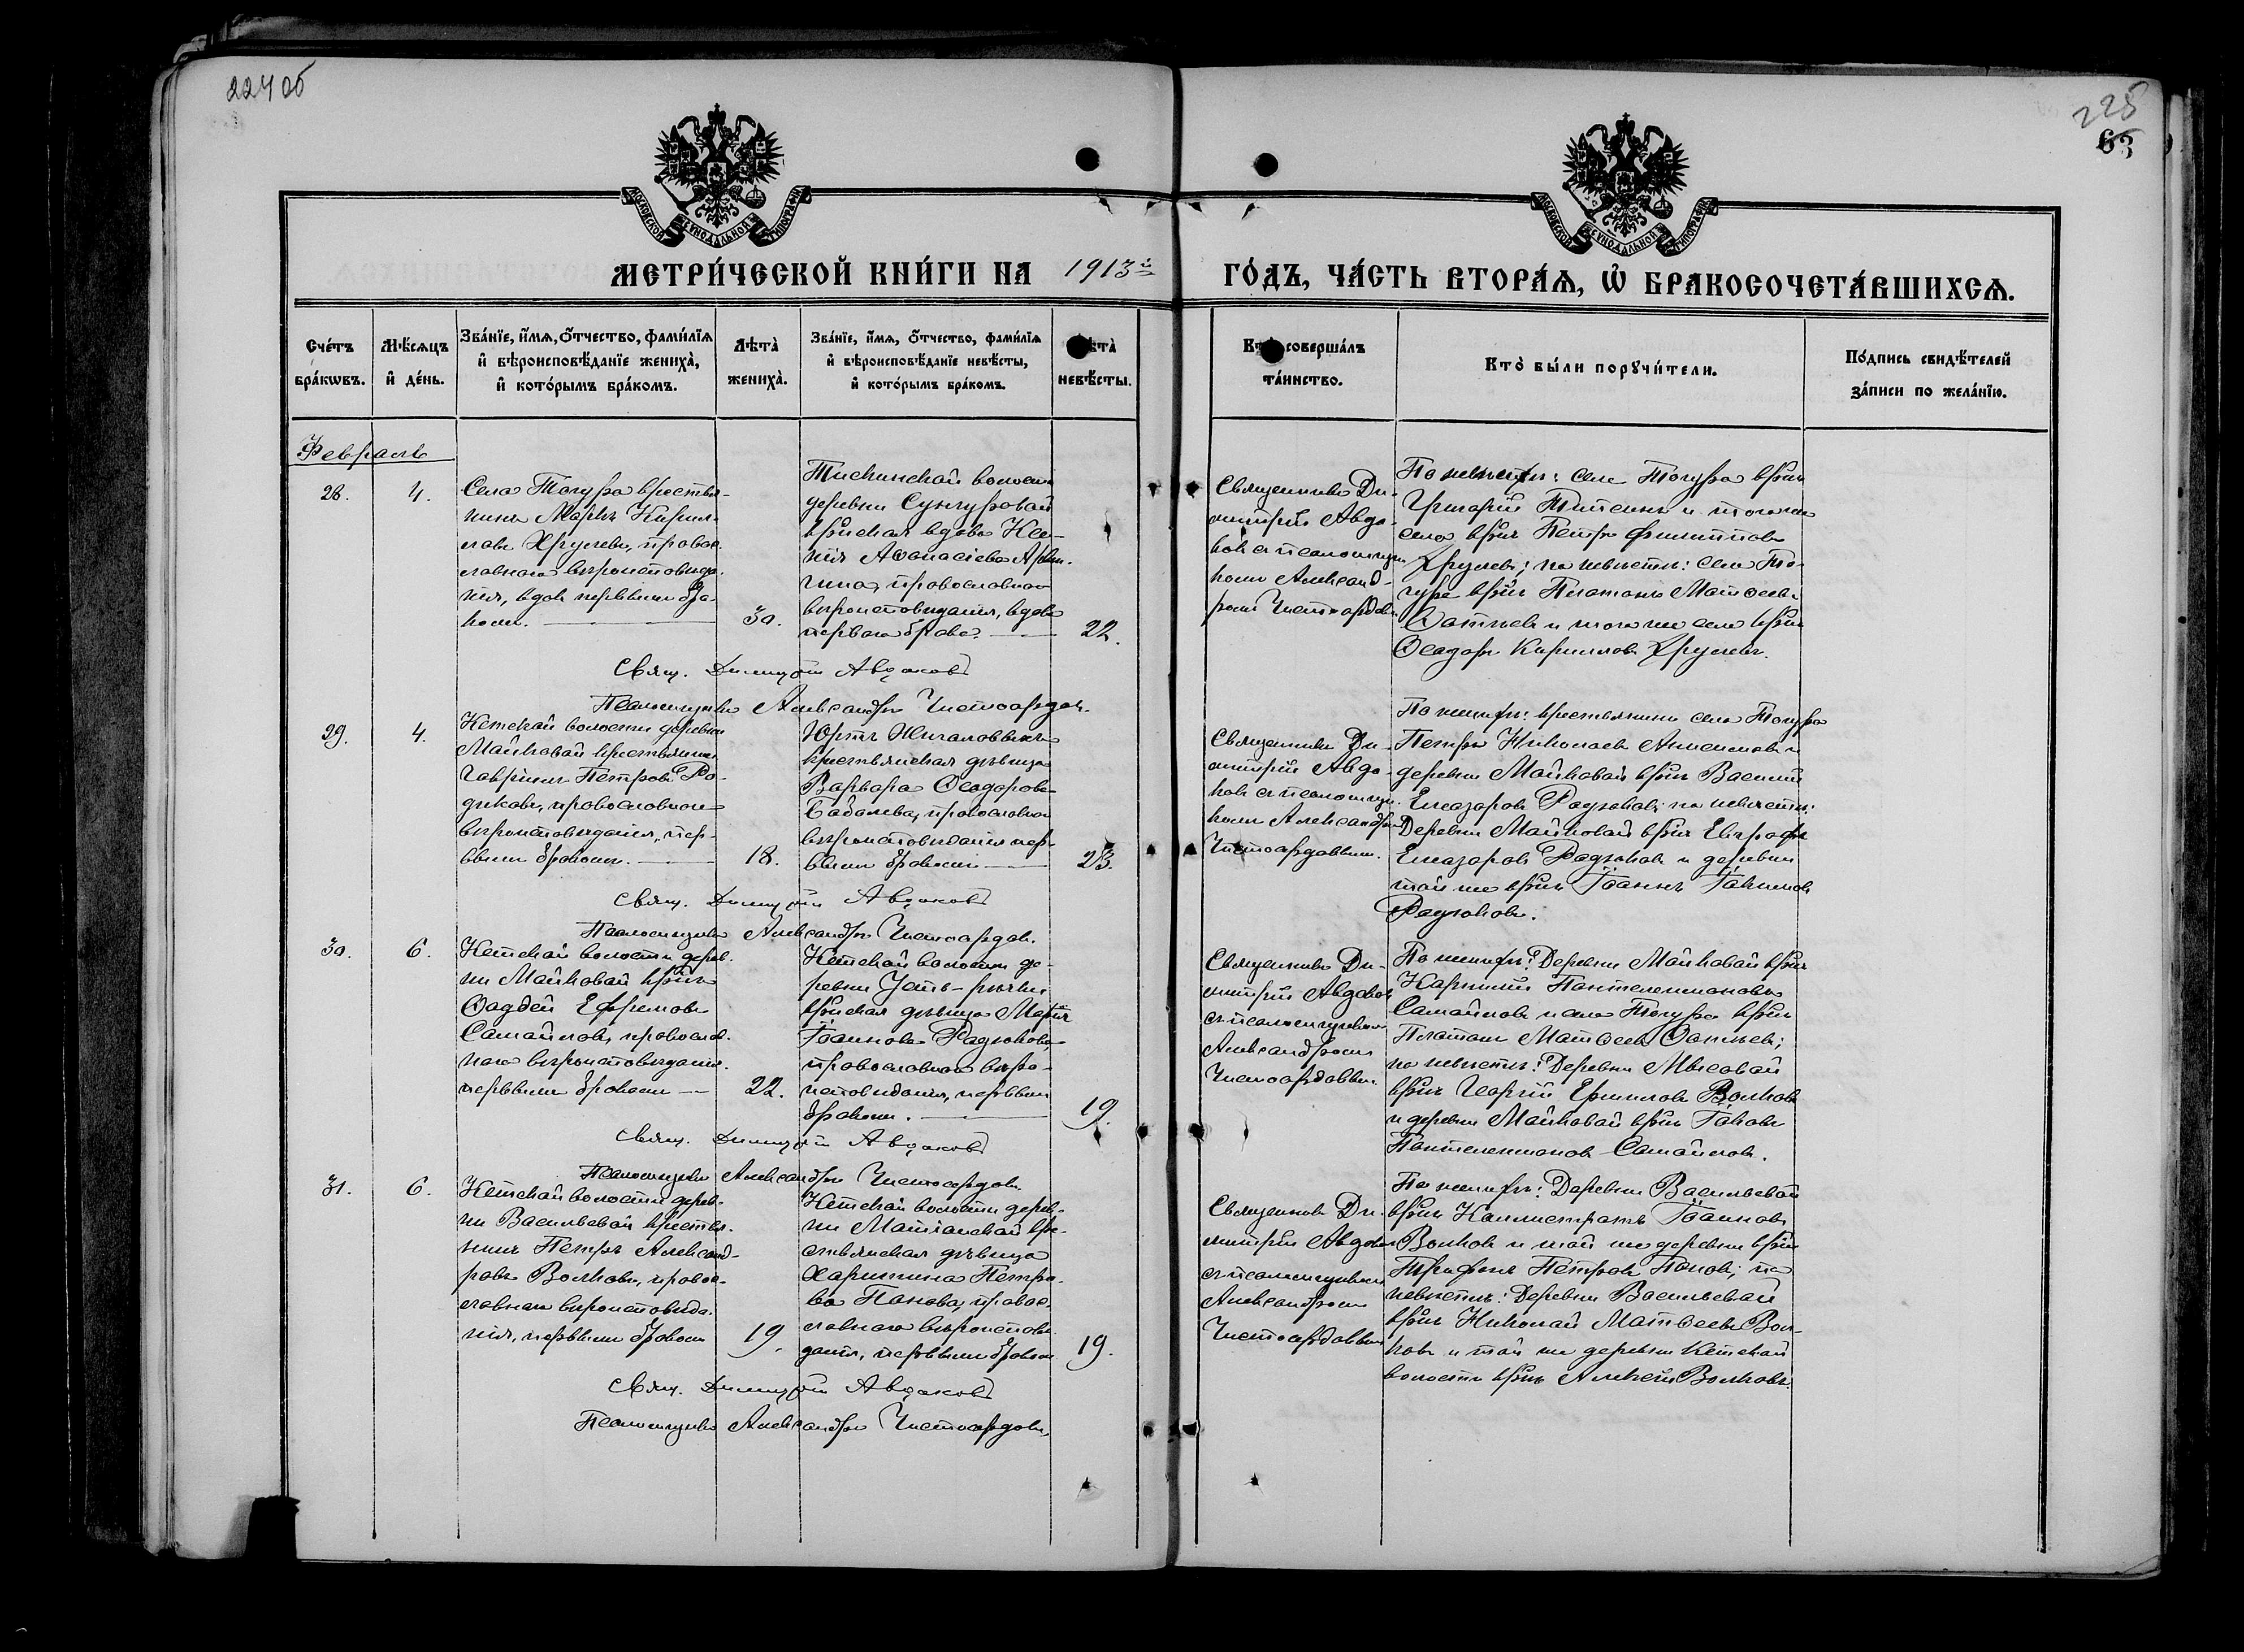 224 об
225
63
МОСКОВСКОЙ СѴНОДАЛЬНОЙ ТИПОГРАФІИ
МОСКОВСКОЙ СѴНОДАЛЬНОЙ ТИПОГРАФІИ
МЕТРИ́ЧЕСКОЙ КНИ́ГИ НА 1913й
ГО́ДЪ, ЧА́СТЬ ВТОРА́Ѧ, Ѽ БРАКОСОЧЕТА́ВШИХСѦ.
Сче́тъ
бра́кѡвъ.
Мѣ́сяцъ
и҆ де́нь.
Зва́нїе, и҆́мѧ, ѻ҆́тчество, фами́лїѧ
и҆ вѣроисповѣ́данїе жениха̀,
и҆ кото́рымъ бра́комъ.
Лѣта̀
жениха̀.
Зва́нїе, и҆́мѧ, ѻ҆́тчество, фами́лїѧ
и҆ вѣроисповѣ́данїе невѣ́сты,
и҆ кото́рымъ бра́комъ.
Лѣта̀
невѣ́сты.
Кто̀ соверша́лъ
та́инство.
Кто̀ бы́ли порꙋчи́тели.
По́дпись свидѣ́телей
за́писи по жела́нїю.
Февраль
28.
4.
Села Тогура крестья-
нинъ Маркъ Кирил-
ловъ Хрулевъ, правос-
лавнаго вѣроисповѣда-
нія, вдов. первымъ бра-
комъ.
30.
Тискинской волости
деревни Сунгуровой
кр̃нская вдова Ксе-
нія Аѳанасіева
православнаго
вѣроисповѣданія, вдова
перваго брака.
22.
Священникъ Ди-
митрій Авда-
ковъ съ псаломщи-
комъ Александ-
ромъ Чистосердов.
села Тогура кр̃нъ
Григорій и того же
села кр̃нъ Петръ Филипповъ
Хрулевъ; по невѣстѣ: села То-
гура кр̃нъ Платонъ Матѳеевъ
Ѳатѣевъ и того же села кр̃нъ
Ѳеодоръ Кирилловъ Хрулевъ.
Свящ. Димитрій Авдаковъ
Псаломщикъ Александръ Чистосердовъ.
29.
4.
Кетской волости деревни
Майковой крестьянинъ
Гавріилъ Петровъ Ро-
диковъ, православнаго
вѣроисповѣданія, пер-
вымъ бракомъ.
18.
Юртъ
крестьянская дѣвица
Варвара Ѳеодорова
православнаго
вѣроисповѣданія пер-
вымъ бракомъ
23.
Священникъ Ди-
митрій Авда-
ковъ съ псаломщи-
комъ Александромъ
Чистосердовымъ.
По женихѣ: крестьянинъ села Тогура
Петръ Николаевъ Анисимовъ и
деревни Майковой кр̃нъ Василій
Елеазаровъ Родюковъ; по невѣстѣ:
Деревни Майковой кр̃нъ Евграфъ
Елеазаровъ Родюковъ и деревни
той же кр̃нъ Іоаннъ Іакимовъ
Родюковъ.
Свящ. Димитрій Авдаковъ
Псаломщикъ Александръ Чистосердовъ.
30.
6.
Кетской волости дерев-
ни Майковой кр̃нъ
Ѳаддей Ефремовъ
Самайловъ, православ-
наго вѣроисповѣданія
первымъ бракомъ
22.
Кетской волости де-
ревни Усть-рѣчки
кр̃нская дѣвица Марія
Іоаннова Родюкова,
православнаго вѣро-
исповѣданія, первымъ
бракомъ.
19.
Священникъ Ди-
митрій Авдаковъ
съ псаломщикомъ
Александромъ
Чистосердовымъ.
По женихѣ: Деревни Майковой кр̃нъ
Пантелеимоновъ
Самайловъ и села Тогура кр̃нъ
Платонъ Матѳеевъ Ѳатѣевъ;
по невѣстѣ: Деревни Мысовой
кр̃нъ Георгій Ермиловъ Волковъ
и деревни Майковой кр̃нъ Іаковъ
Пантелеимоновъ Самайловъ.
Свящ. Димитрій Авдаковъ
Псаломщикъ Александръ Чистосердовъ.
31.
6.
Кетской волости дерев-
ни Васильевой крестья-
нинъ Петръ Александ-
ровъ Волковъ, правос-
лавнаго вѣроисповѣда-
нія, первымъ бракомъ
19.
Кетской волости дерев-
ни кре-
стьянская дѣвица
Харитина Петро-
ва Панова, правос-
лавнаго вѣроисповѣ-
данія, первымъ бракомъ
19.
Священникъ Ди-
митрій Авдаковъ
съ псаломщикомъ
Александромъ
Чистосердовымъ
По женихѣ: Деревни Васильевой
кр̃нъ Каллистратъ Іоанновъ
Волковъ и той же деревни кр̃нъ
Трифонъ Петровъ Пановъ; по
невѣстѣ: Деревни Васильевой
кр̃нъ Николай Матѳеевъ Вол-
ковъ и той же деревни Кетской
волости кр̃нъ Алексѣй Волковъ.
Свящ. Димитрій Авдаковъ
Псаломщикъ Александръ Чистосердовъ,